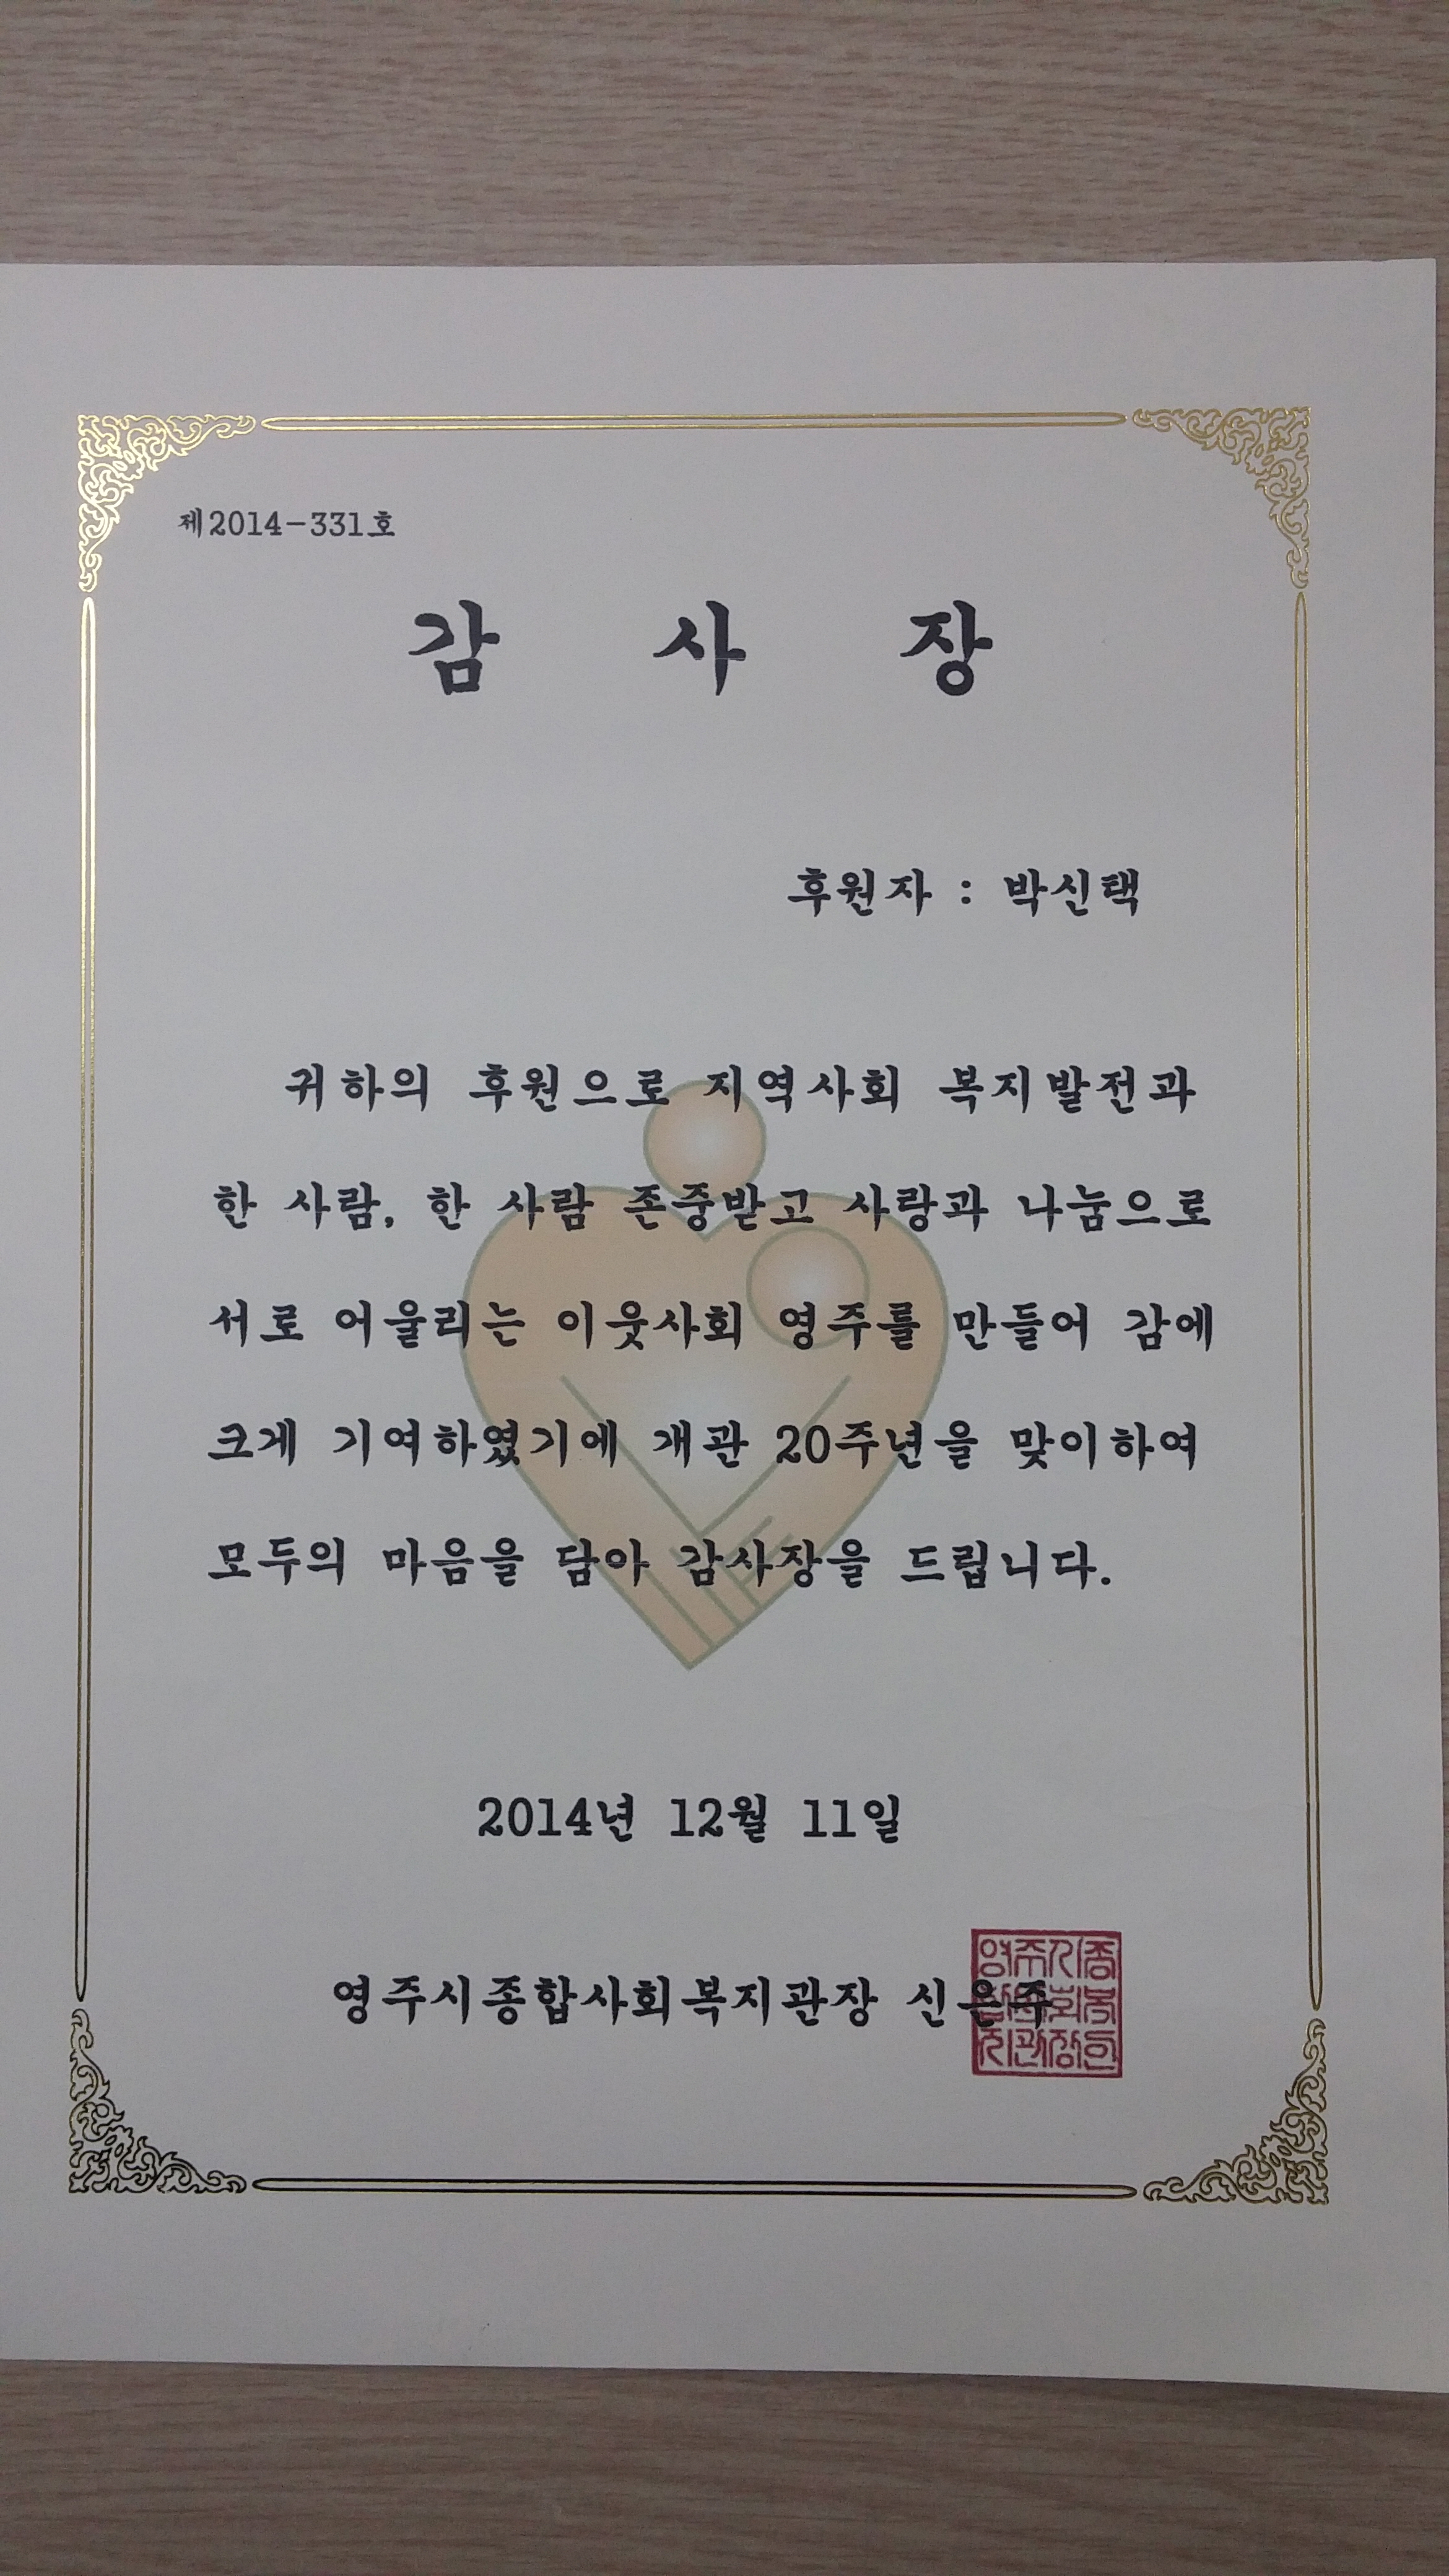 제2014-331호
감 사 장
후원자 : 박신택
귀하의 후원으로 지역사회 복지발전과
한 사람, 한 사람 존중받고 사랑과 나눔으로
서로 어울리는 이웃사회 영주를 만들어 감에
크게 기여하였기에 개관 20주년을 맞이하여
모두의 마음을 담아 감사장을 드립니다.
2014년 12월 11일
영주시종합사회복지관장 신은주